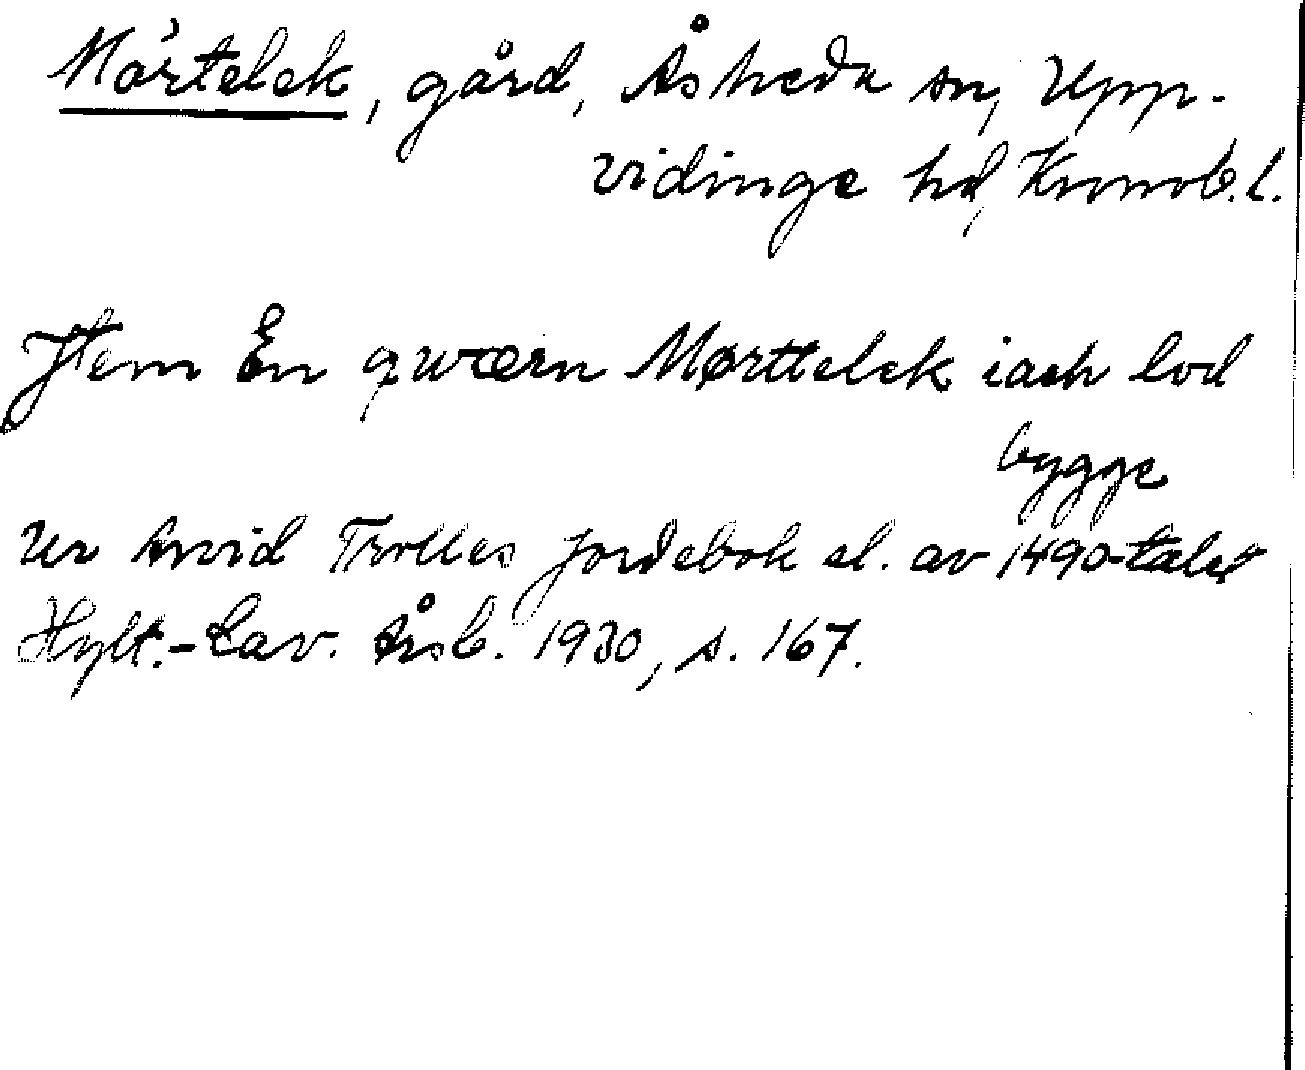 Mörtelek, gård, Åsheda sn, Upp-
vidinge hd, Kronob. l.
Jtem En qwærn Mørttelek iach lod
bygge
Ur Arvid Trolles jordebok sl. av 1490-talet
Hylt.-Cav. Årsb. 1930, s. 167.